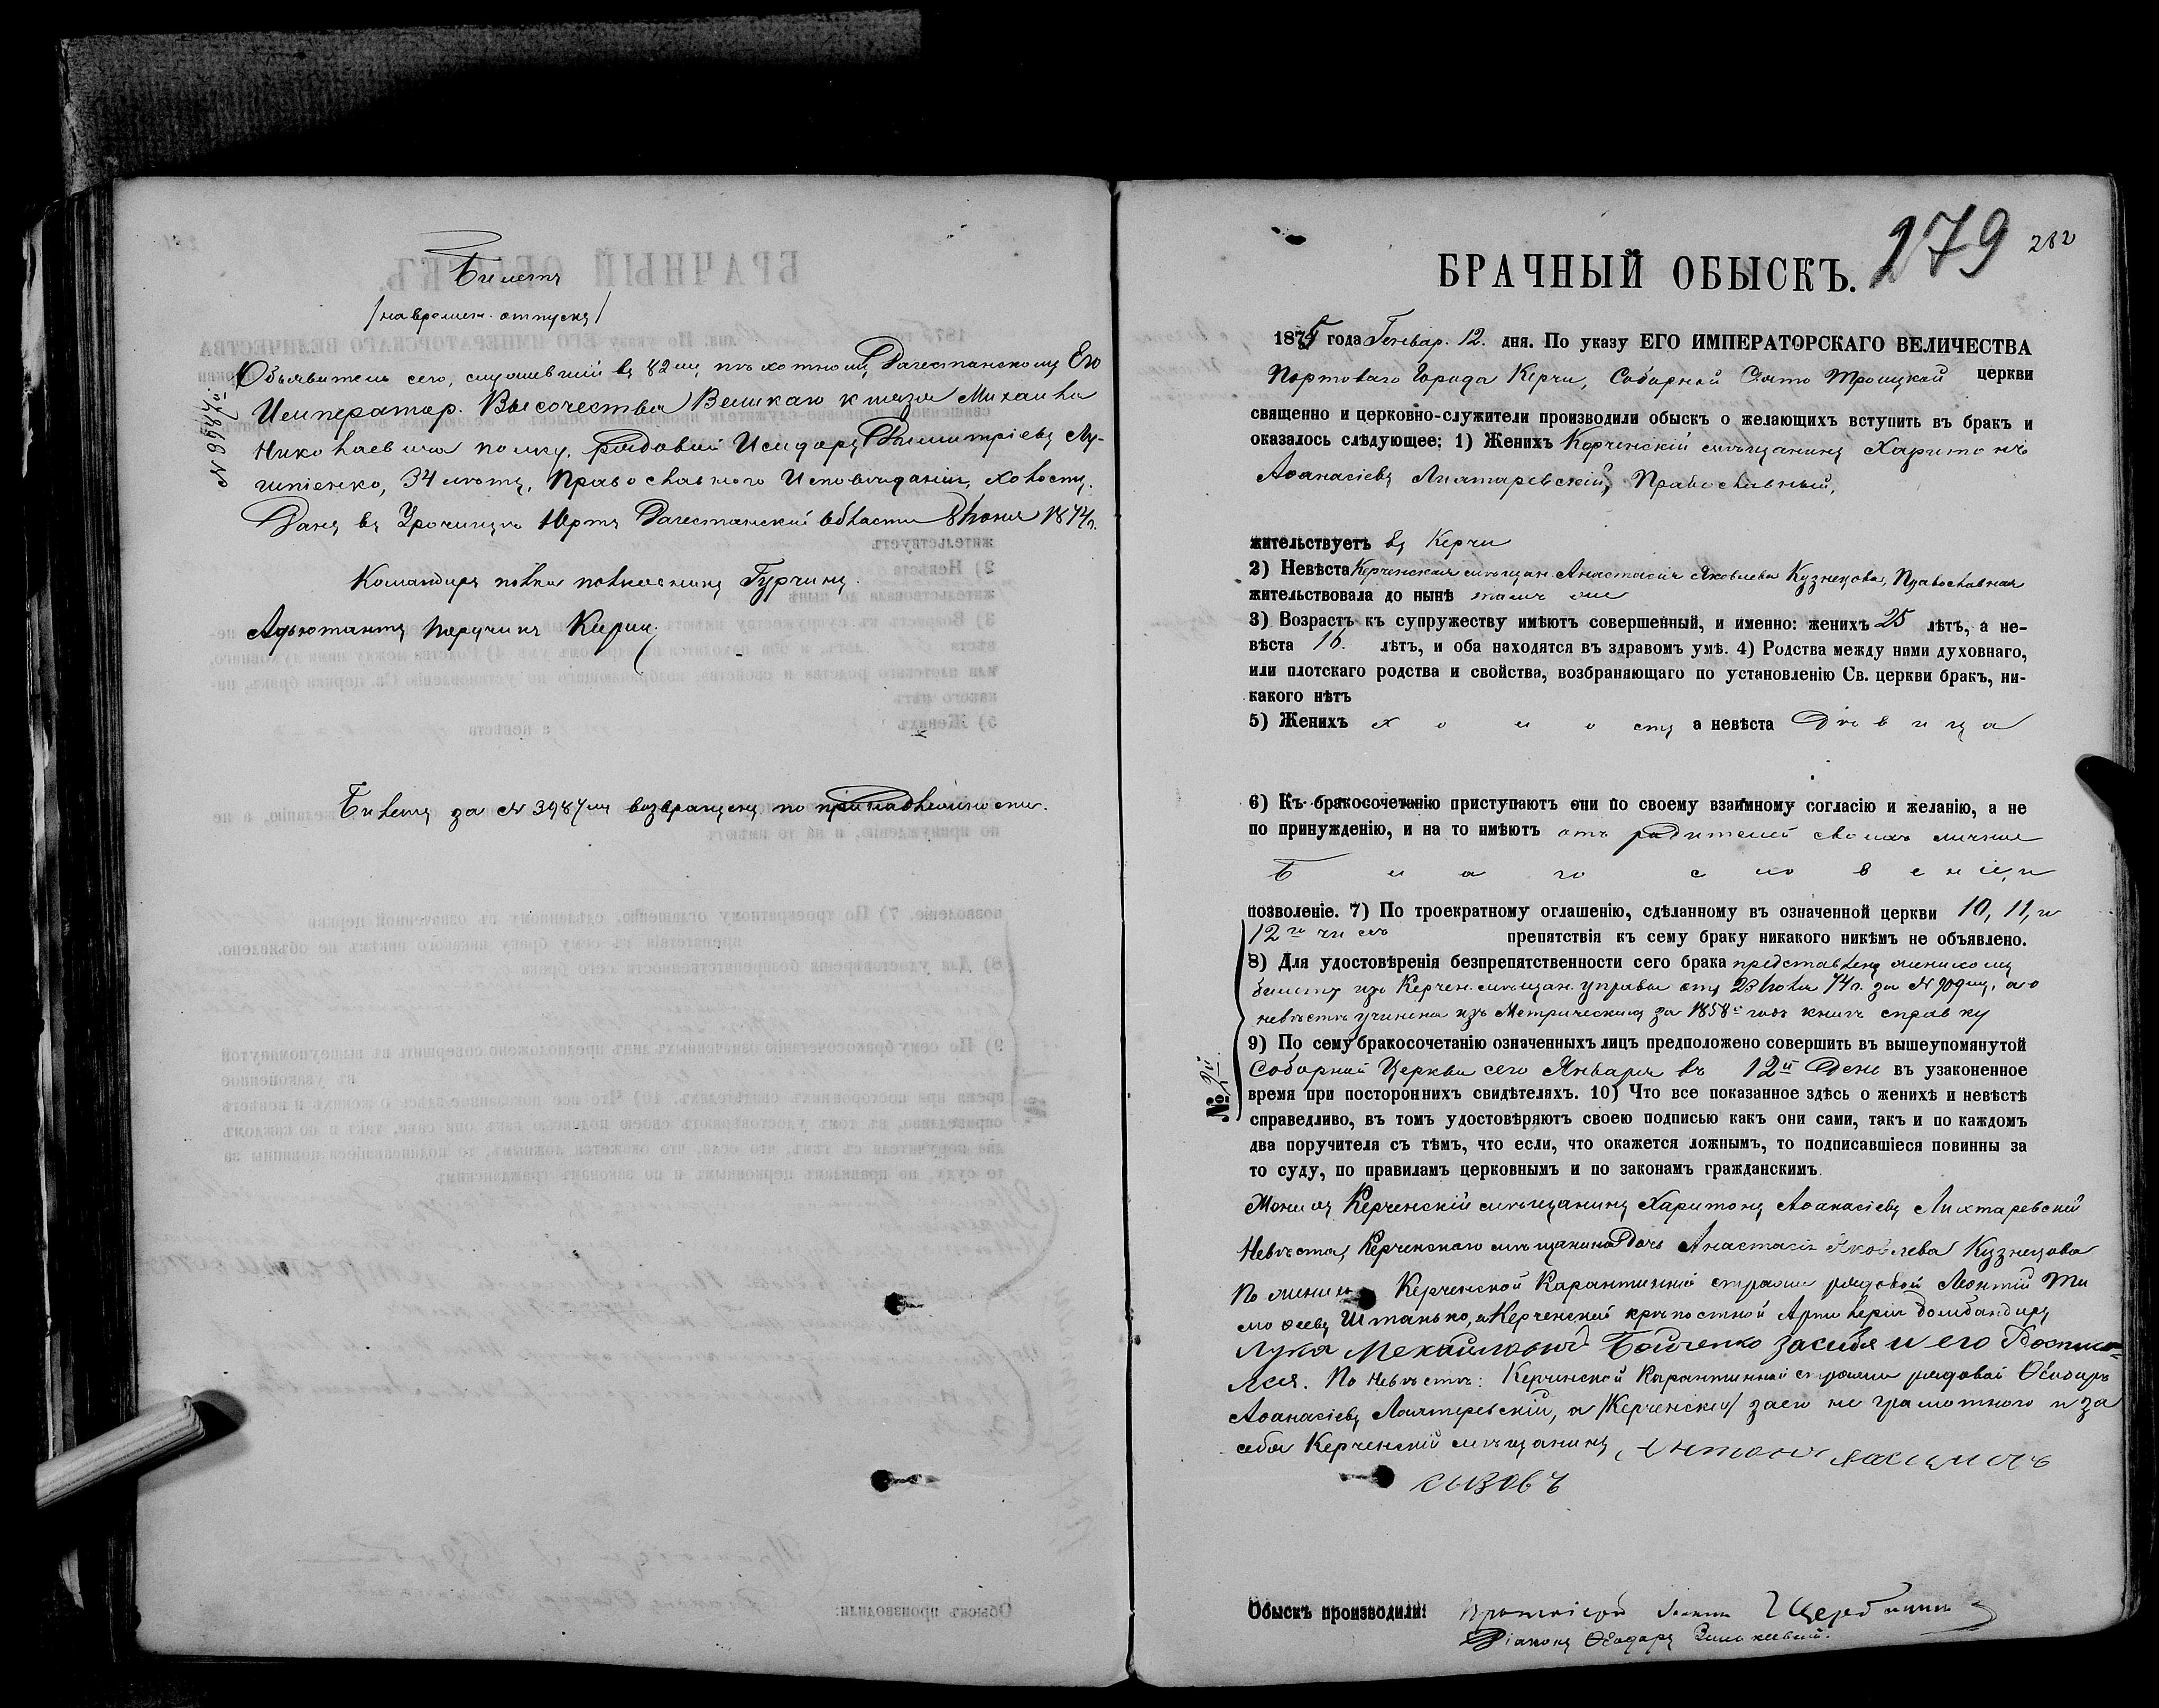 Билетъ
/на времен. отпускъ/
№ 3987й
Объявитель сего, служившій въ 82мъ пѣхотномъ Дагестанскомъ Его
Император. Высочества Великаго князя Михаила
Николаевича полку, рядовой Исидоръ Димитріевъ Лу-
шпіенко, 34 лѣтъ, Православного Исповѣданія, холостъ.
Данъ въ Урочищѣ Дагестанской Области 1874г.
Командиръ полка полковникъ Гурчинъ.
Адъютантъ Поручикъ
Билетъ за № 3987мъ возвращенъ по принадлежности.
279 282
БРАЧНЫЙ ОБЫСКЪ.
1875 года Генвар. 12. дня. По указу ЕГО ИМПЕРАТОРСКАГО ВЕЛИЧЕСТВА
Портоваго Города Керчи, Соборной Свято Троицкой церкви
священно и церковно-служители производили обыскъ о желающихъ вступить въ бракъ и
оказалось слѣдующее: 1) Женихъ Керченскій мѣщанинъ Харитонъ
Аѳанасіевъ Лихтаревскій, Православный,
жительствуетъ въ Керчи
2) Невѣста Керченская мѣщан. Анастасія Яковлева Кузнецова, Православная
жительствовала до нынѣ тамъ же
3) Возрастъ къ супружеству имѣютъ совершенный, и именно: женихъ 25 лѣтъ, а не-
вѣста 16. лѣтъ, и оба находятся въ здравомъ умѣ. 4) Родства между ними духовнаго,
или плотскаго родства и свойства, возбраняющаго по установленію Св. церкви бракъ, ни-
какого нѣтъ
5) Женихъ холостъ а невѣста Дѣвица
6) Къ бракосочетанію приступаютъ они по своему взаимному согласію и желанію, а не
по принужденію, и на то имѣютъ отъ родителей своихъ личныя
Благословенія, и
позволеніе. 7) По троекратному оглашенію, сдѣланному въ означенной церкви 10, 11, и
12го числъ препятствія къ сему браку никакого никѣмъ не объявлено.
8) Для удостовѣренія безпрепятственности сего брака представленъ женихомъ
билетъ изъ Керчен. мѣщан. управы отъ 23 Іюля 74г. за № 909мъ, а о
невѣстѣ учинена изъ Метрическихъ за 1858й годъ книгъ справку
№ 2й.
9) По сему бракосочетанію означенныхъ лицъ предположено совершить въ вышеупомянутой
Соборной Церкви сего Января въ 12й День въ узаконенное
время при постороннихъ свидѣтеляхъ. 10) Что все показанное здѣсь о женихѣ и невѣстѣ
справедливо, въ томъ удостовѣряютъ своею подписью какъ они сами, такъ и по каждомъ
два поручителя съ тѣмъ, что если, что окажется ложнымъ, то подписавшіеся повинны за
то суду, по правиламъ церковнымъ и по законамъ гражданскимъ.
Женихъ Керченскій мѣщанинъ Харитонъ Аѳанасіевъ Лихтаревскій
Невѣста, Керченскаго мѣщанина Дочь Анастасія Яковлева Кузнецова
По женихѣ Керченской Карантинной стражи рядовой Леонтій Ти
моѳеевъ Штанько, и Керченской крѣпостной Артиллеріи бомбандиръ
Лука Мехайловъ Бойченко засибя и его Росписа-
лся. По Невѣстѣ: Керченской Карантинной стражи рядовой Ѳеодоръ
Аѳанасіевъ Лихтеревскій, а /Керченскій/ за его не грамотного и за
себя Керченскій мѣщанинъ, Антонъ
Сызовъ
Обыскъ производили: Протоіерей Іоаннъ Щербинин
Діаконъ Ѳеодоръ